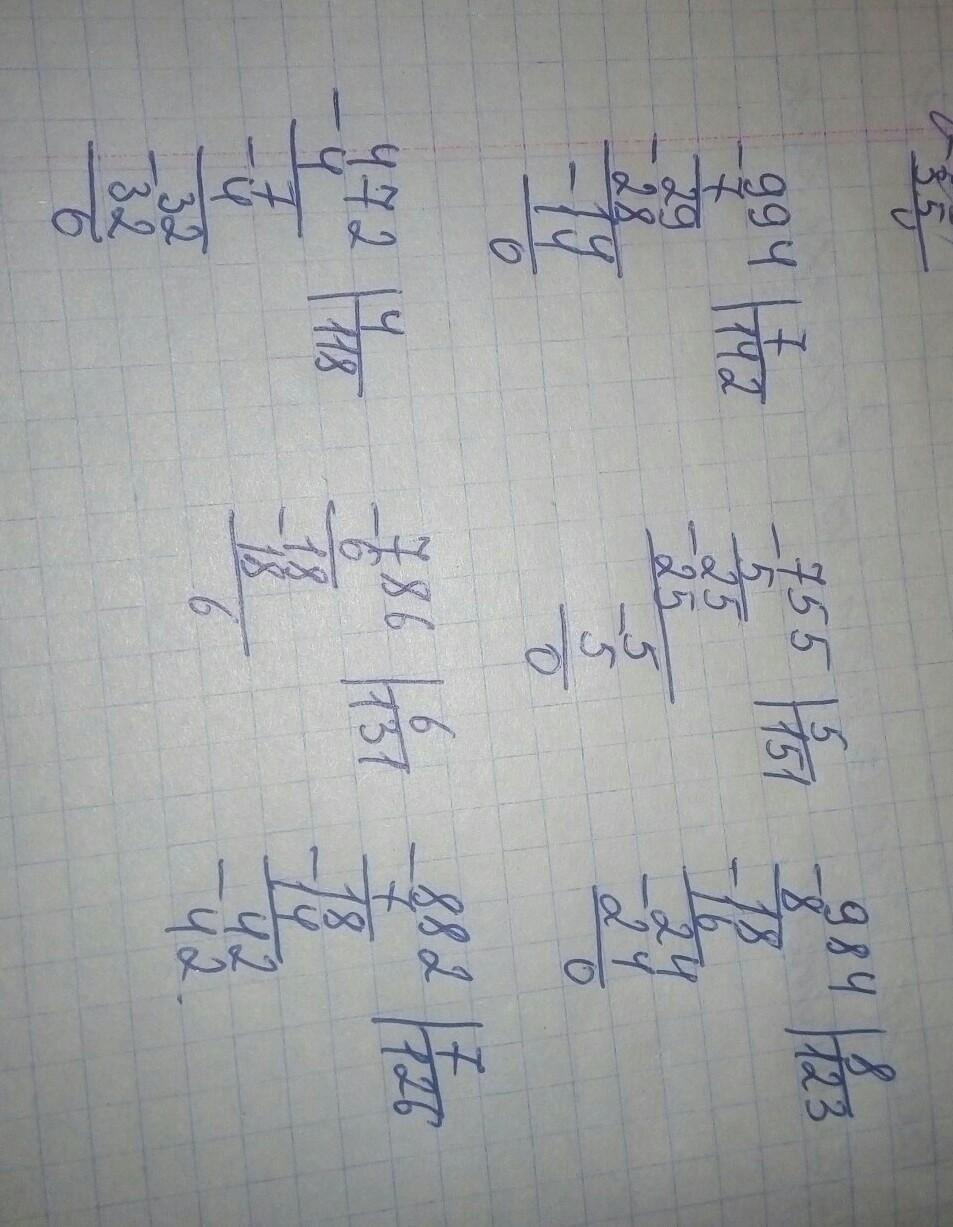 35
-994 | 7
7 | 142
-29
28
-14
14
0
-755 | 5
5 | 151
-25
25
-5
5
0
-984 | 8
8 | 123
-18
16
-24
24
0
-472 | 4
4 | 118
-7
4
-32
32
0
-786 | 6
6 | 131
-18
18
6
-882 | 7
7 | 126
-18
14
-42
42